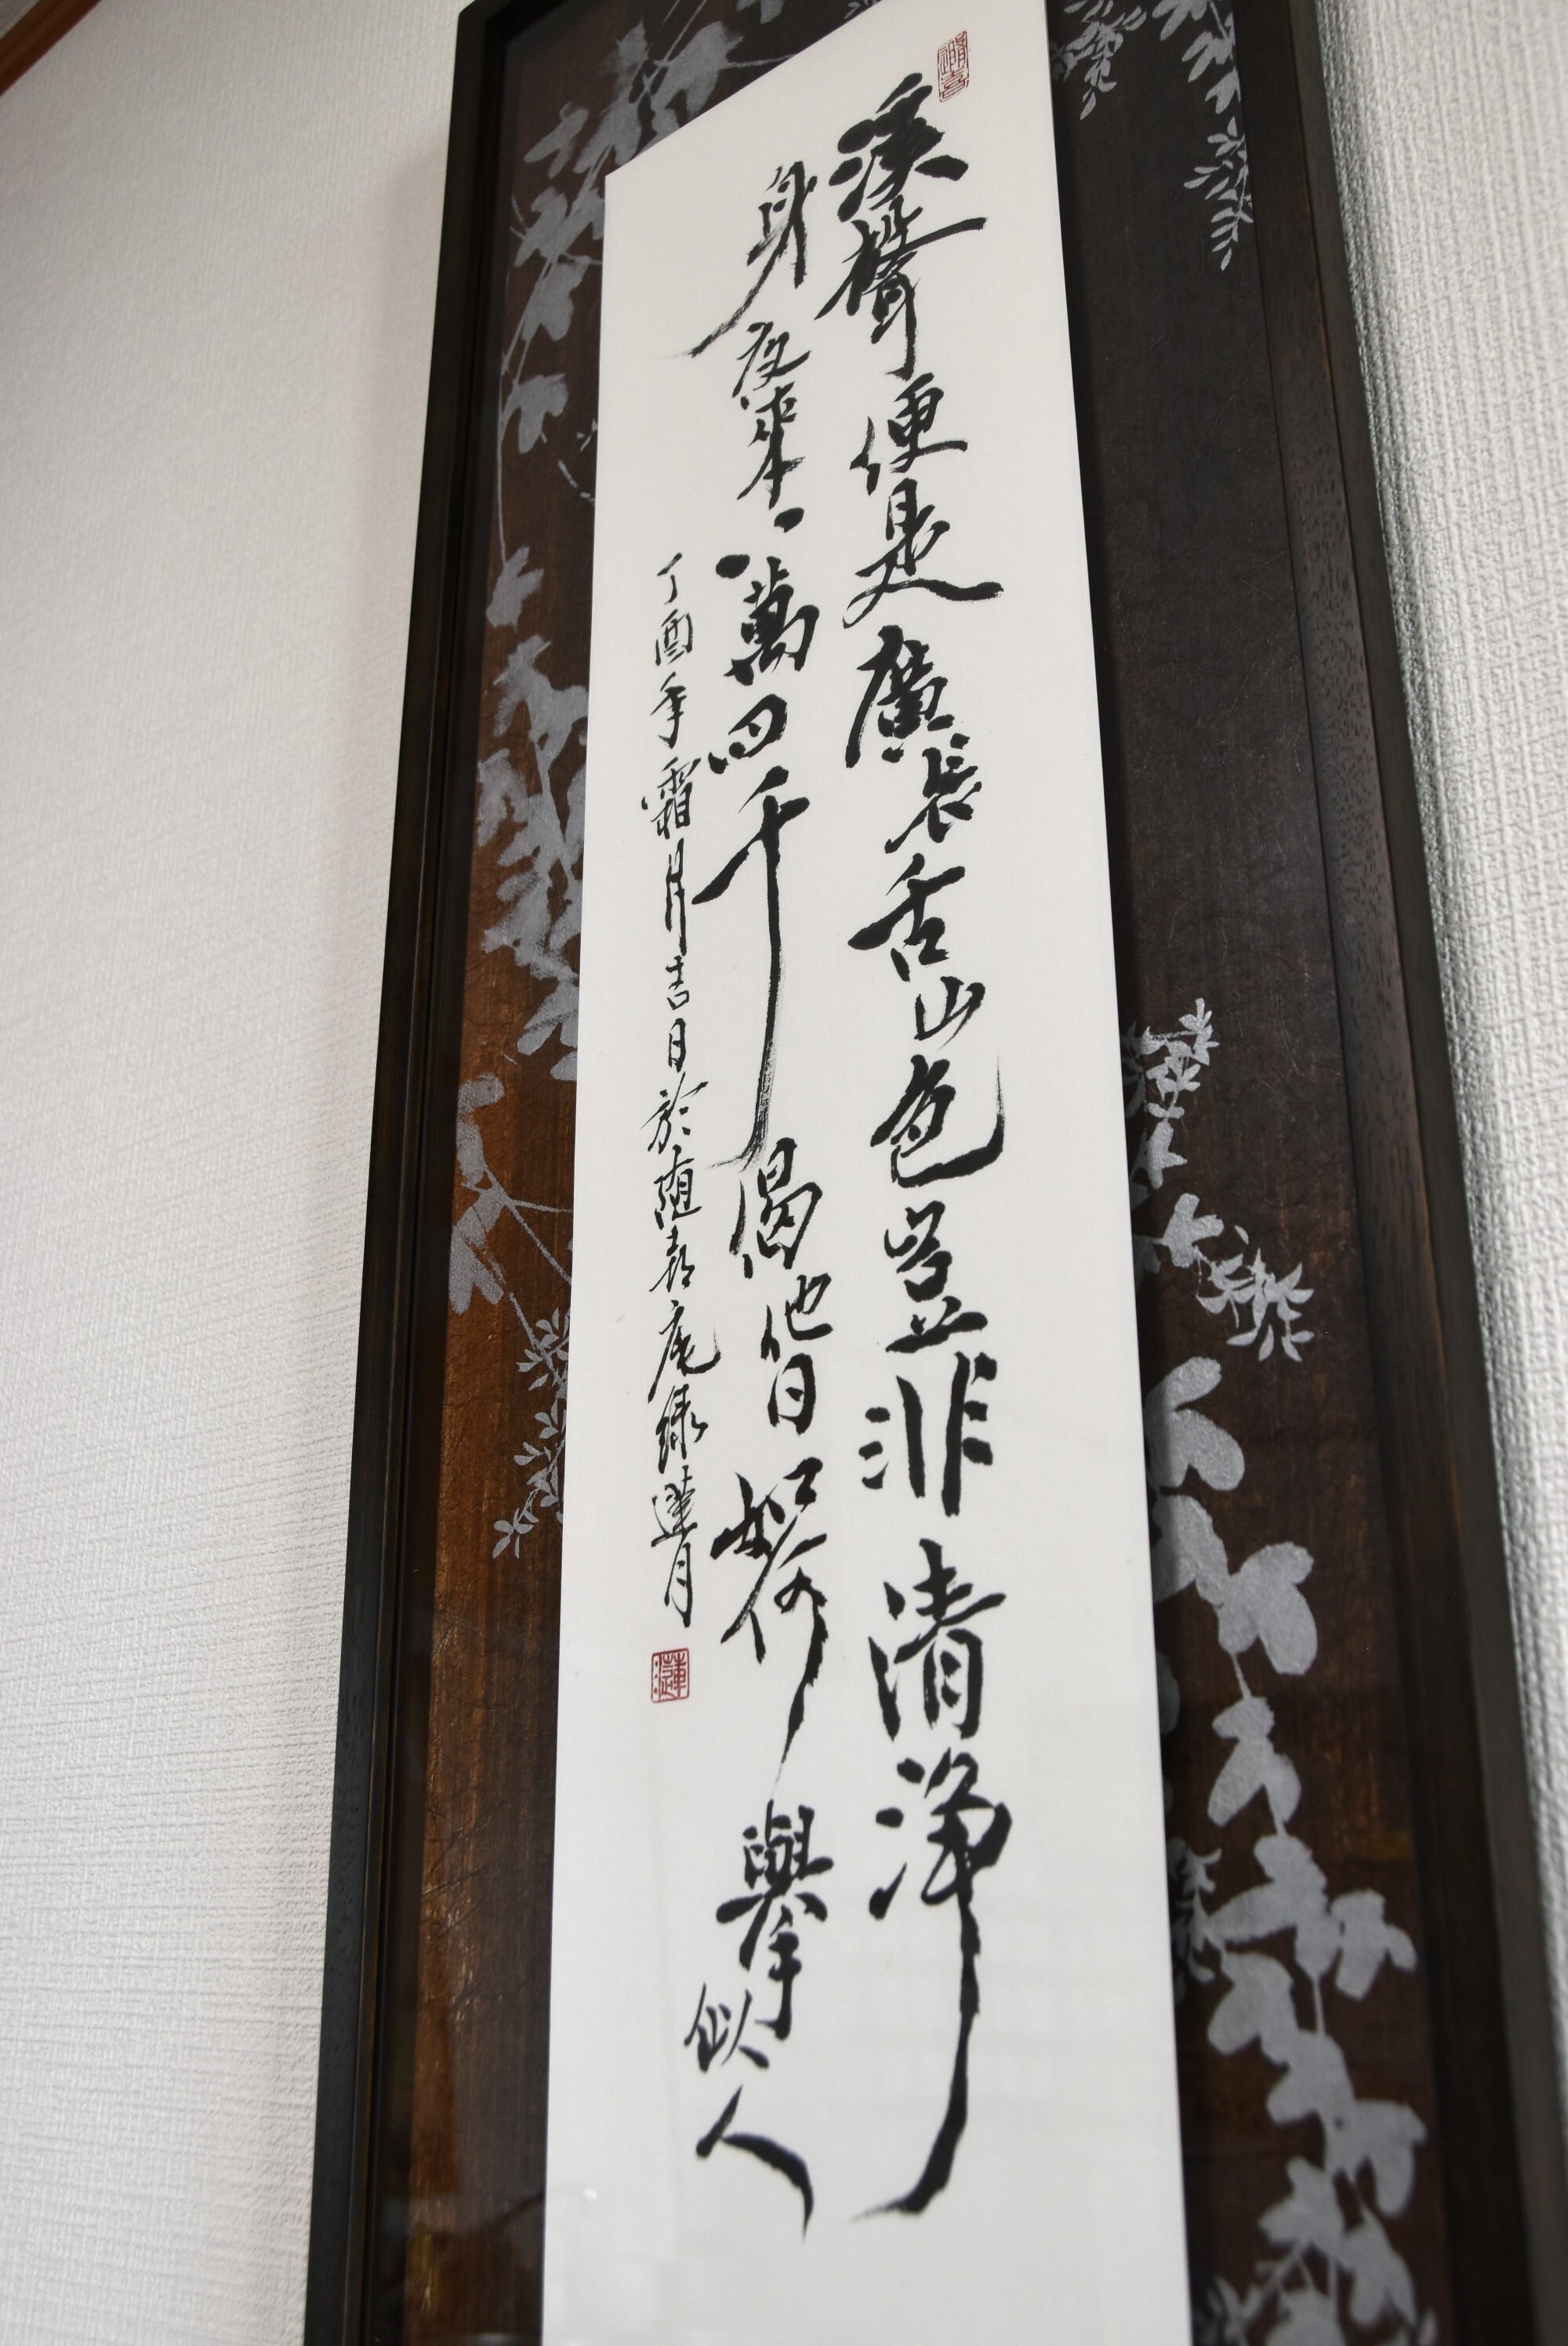 溪聲便是廣長舌山色豈非清淨
身夜來八萬四千偈他日如何舉似人
丁酉年霜月吉日於随庵緑蓮月